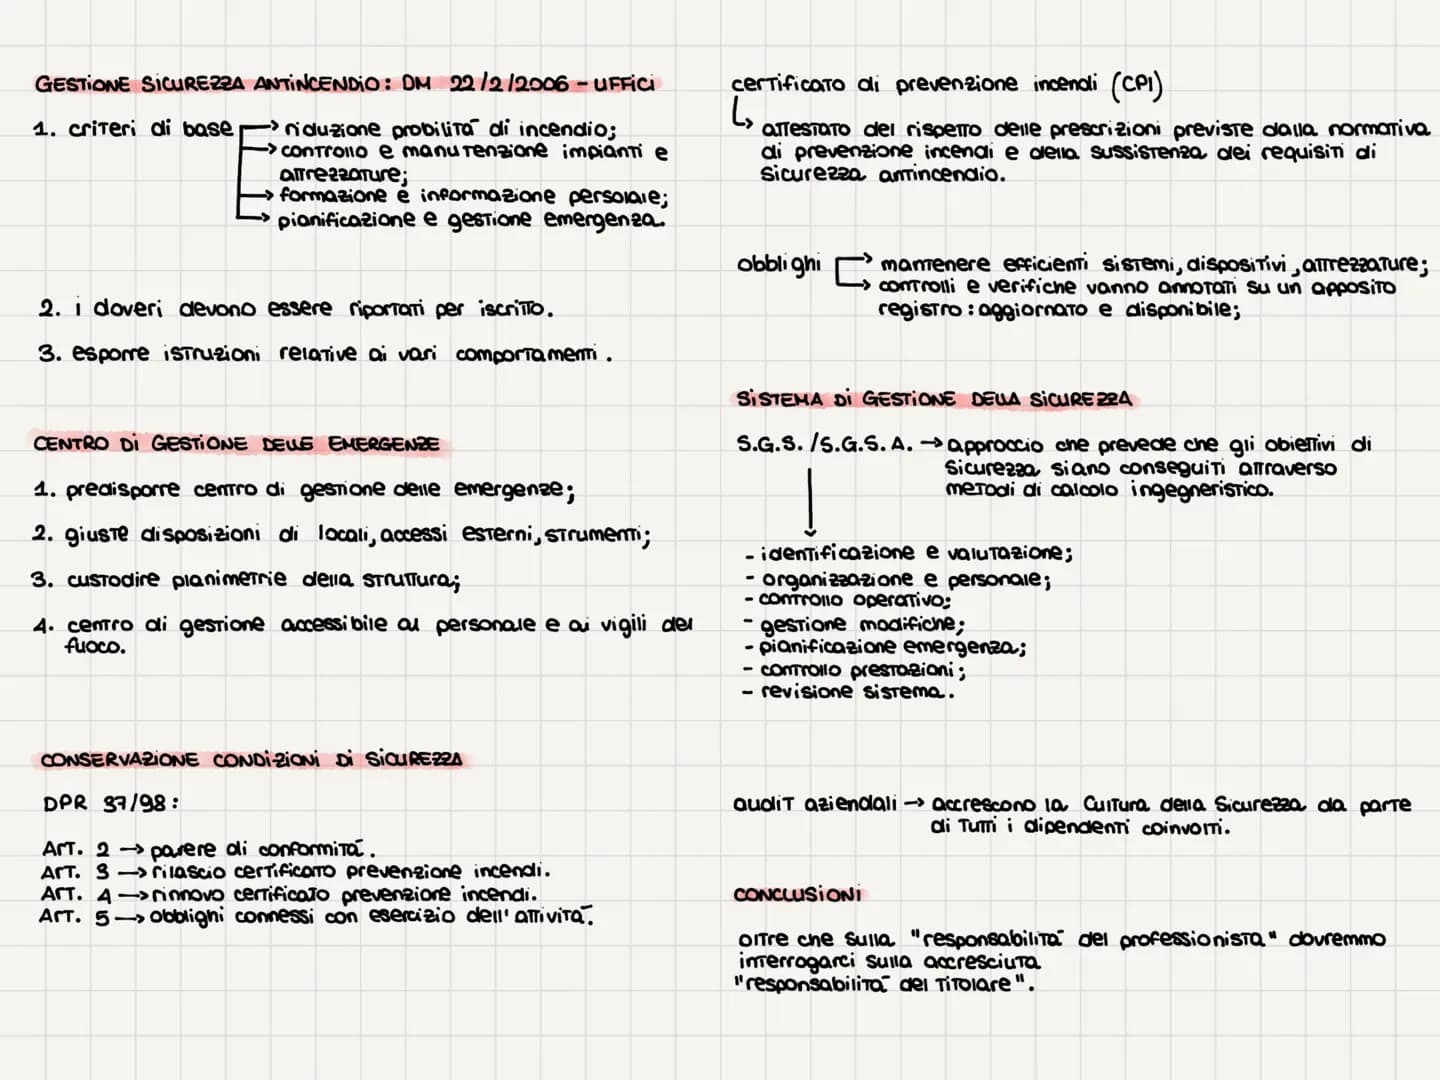 GESTIONE SICUREZZA ANTINCENDIO: DM 22/2/2006 - UFFICI
1. criteri di base → riduzione probilità di incendio;
→ controllo e manutenzione impianti e
attrezzature;
→ formazione e informazione persolale;
→ pianificazione e gestione emergenza.
2. i doveri devono essere riportati per iscritto.
3. esporre istruzioni relative ai vari comportamenti.
CENTRO DI GESTIONE DELLE EMERGENZE
1. predisporre centro di gestione delle emergenze;
2. giuste disposizioni di locali, accessi esterni, strumenti;
3. custodire planimetrie della struttura;
4. centro di gestione accessibile al personale e ai vigili del
fuoco.
CONSERVAZIONE CONDIZIONI DI SICUREZZA
DPR 37/98:
Art. 2 → parere di conformità.
Art. 3 → rilascio certificato prevenzione incendi.
Art. 4 → rinnovo certificato prevenzione incendi.
Art. 5 → obblighi connessi con esercizio dell'attività.
certificato di prevenzione incendi (CPI)
↳ attestato del rispetto delle prescrizioni previste dalla normativa
di prevenzione incendi e della sussistenza dei requisiti di
sicurezza antincendio.
obblighi → mantenere efficienti sistemi, dispositivi, attrezzature;
→ controlli e verifiche vanno annotati su un apposito
registro: aggiornato e disponibile;
SISTEMA DI GESTIONE DELLA SICUREZZA
S.G.S. /S.G.S.A. → approccio che prevede che gli obiettivi di
sicurezza siano conseguiti attraverso
metodi di calcolo ingegneristico.
- identificazione e valutazione;
- organizzazione e personale;
- controllo operativo;
- gestione modifiche;
- pianificazione emergenza;
- controllo prestazioni;
- revisione sistema.
audit aziendali → accrescono la cultura della sicurezza da parte
di tutti i dipendenti coinvolti.
CONCLUSIONI
oltre che sulla "responsabilità del professionista" dovremmo
interrogarci sulla accresciuta
"responsabilità del titolare".